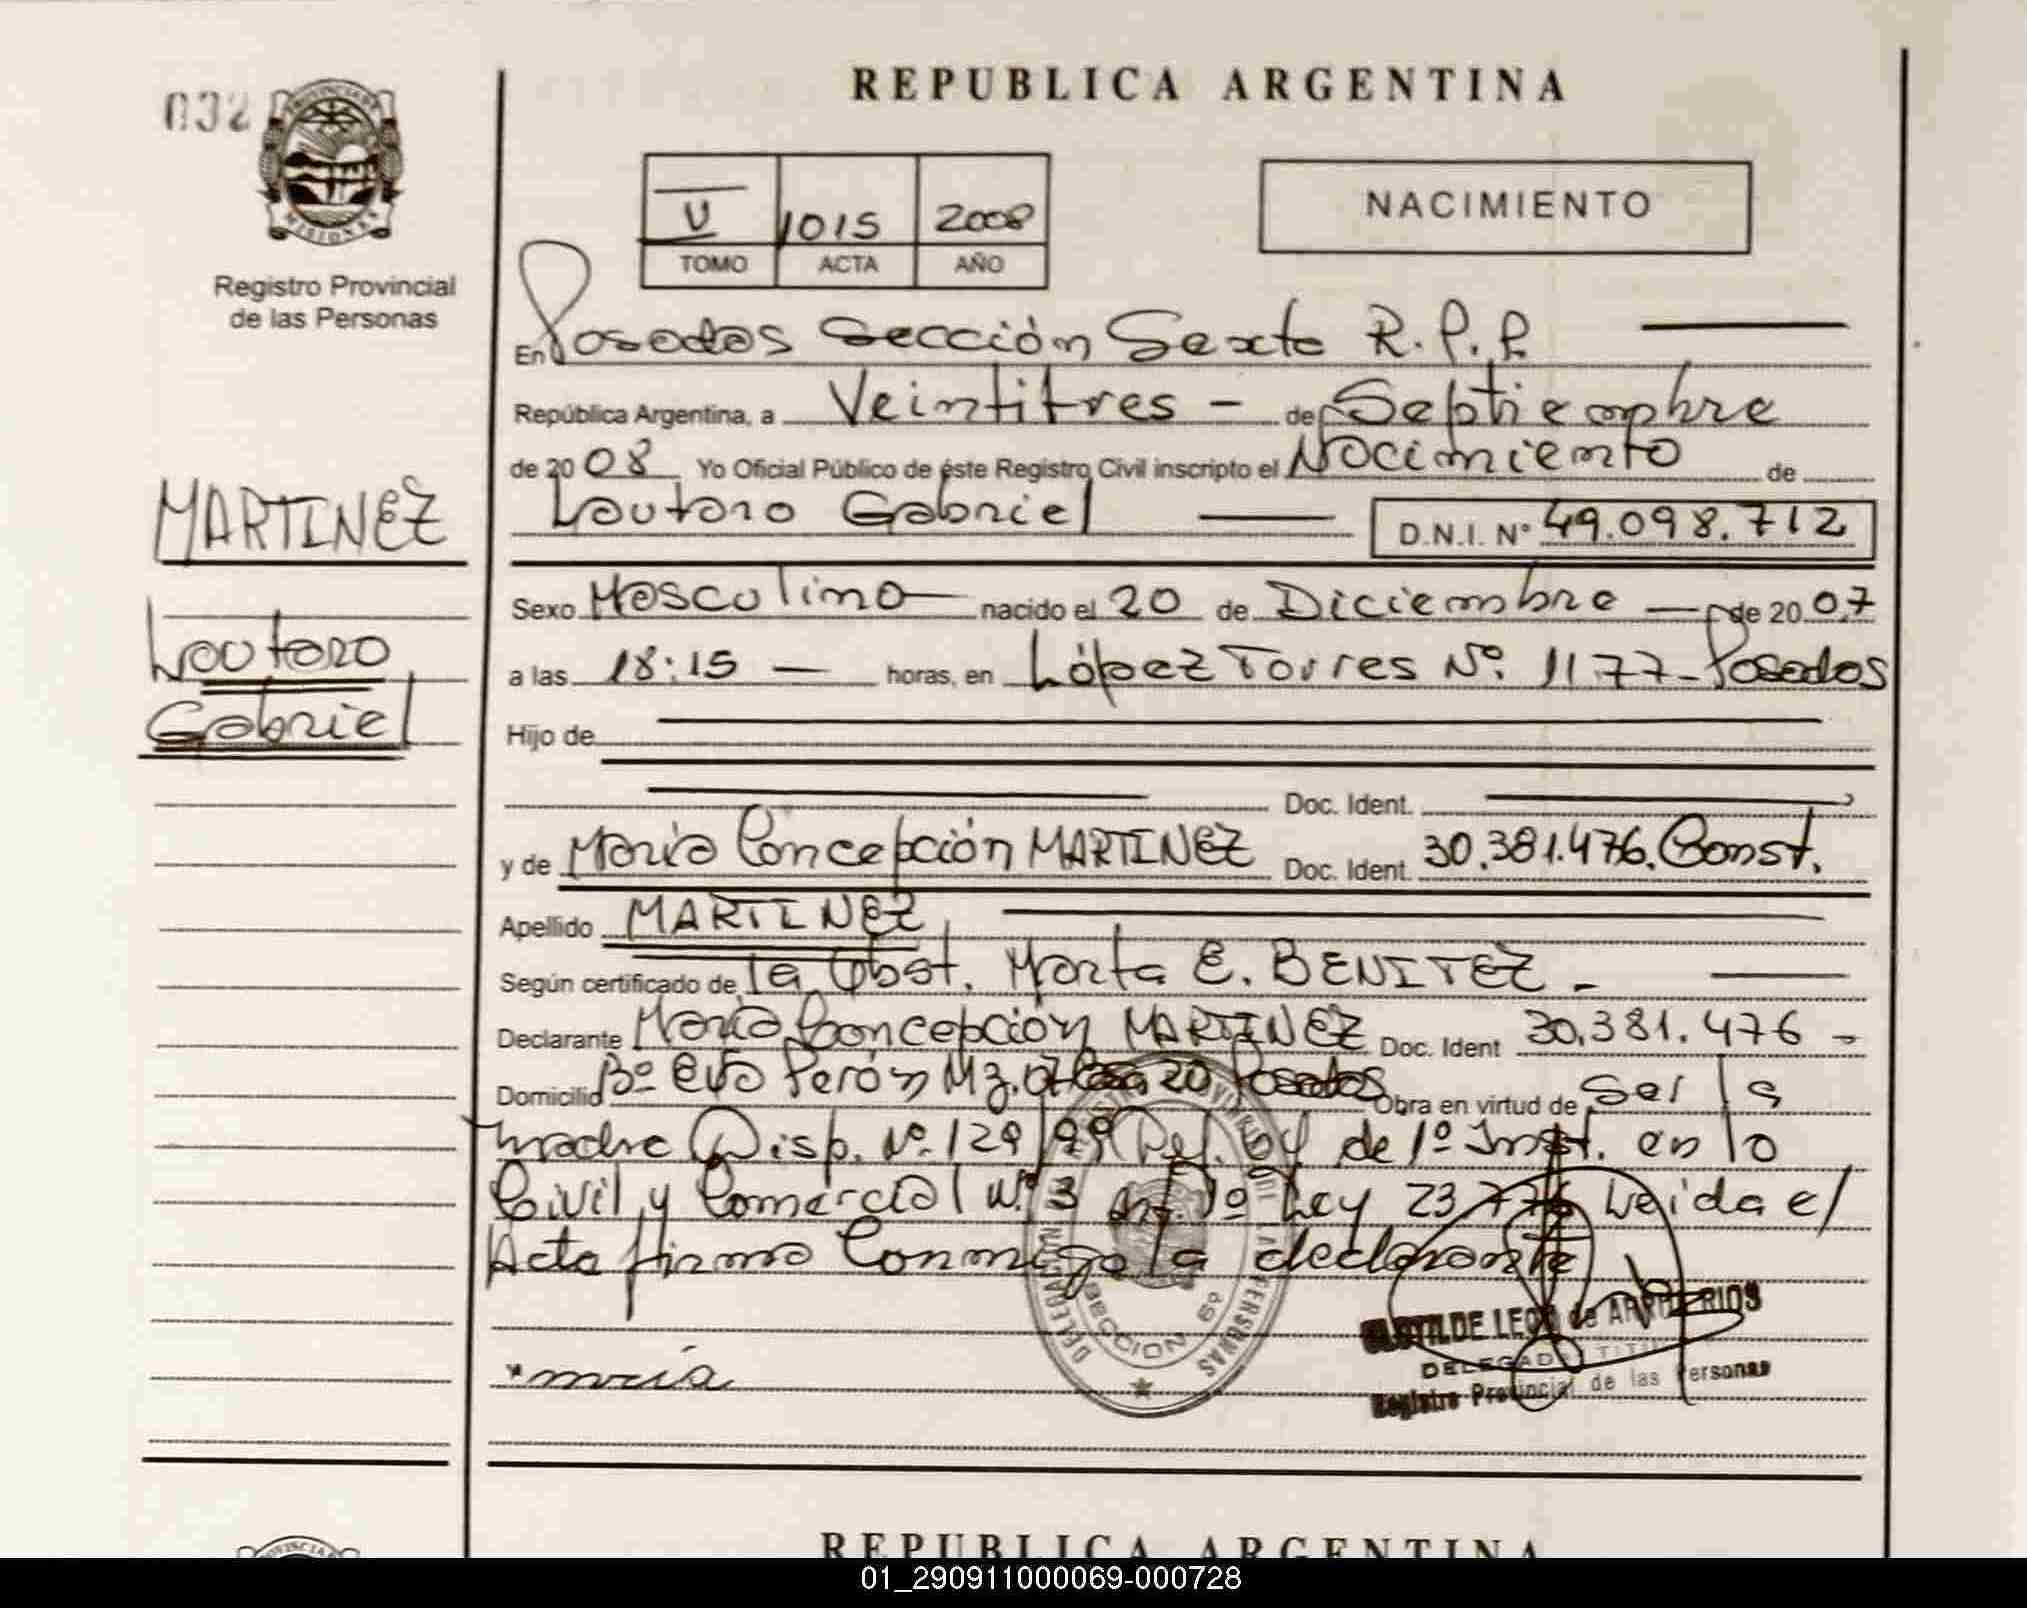 032
Registro Provincial
de las Personas
MARTINEZ
Lautaro
Gabriel
REPUBLICA ARGENTINA
V 1015 2008
TOMO ACTA AÑO
NACIMIENTO
En Posadas Sección Sexta R.P.P.
República Argentina, a Veintitres - de Septiembre
de 2008 Yo Oficial Público de éste Registro Civil inscripto el Nacimiento de
Lautaro Gabriel D.N.I. Nº 49.098.712
Sexo Masculino nacido el 20 de Diciembre de 2007
a las 18:15 horas, en López Torres Nº. 1177 - Posadas
Hijo de
Doc. Ident.
y de María Concepción MARTINEZ Doc. Ident. 30.381.476. Const.
Apellido MARTINEZ
Según certificado de la Obst. Marta E. BENITEZ -
Declarante María Concepción MARTINEZ Doc. Ident 30.381.476 -
Domicilio Bº Eva Perón Mz. 20 Posadas Obra en virtud de ser la
madre Disp. Nº. 129/99 Def. de 1º Inst. en lo
Civil y Comercial Nº 3 Ley 23.776 Leida el
Acta firma Conmigo la declarante
DELEGACION
SECCION 6º
CLOTILDE LEON de
DELEGADA TITULAR
Registro Provincial de las Personas
REPUBLICA ARGENTINA
01_290911000069-000728